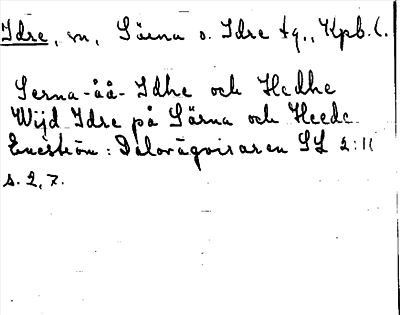 Idre, sn, Särna o. Idre tg., Kpb. l.
Serna-åå- Idhe och Hedhe
Wijd Idre på Särna och Heede
Eneström: Dalavägvisaren SL 2:11
s. 2, 7.